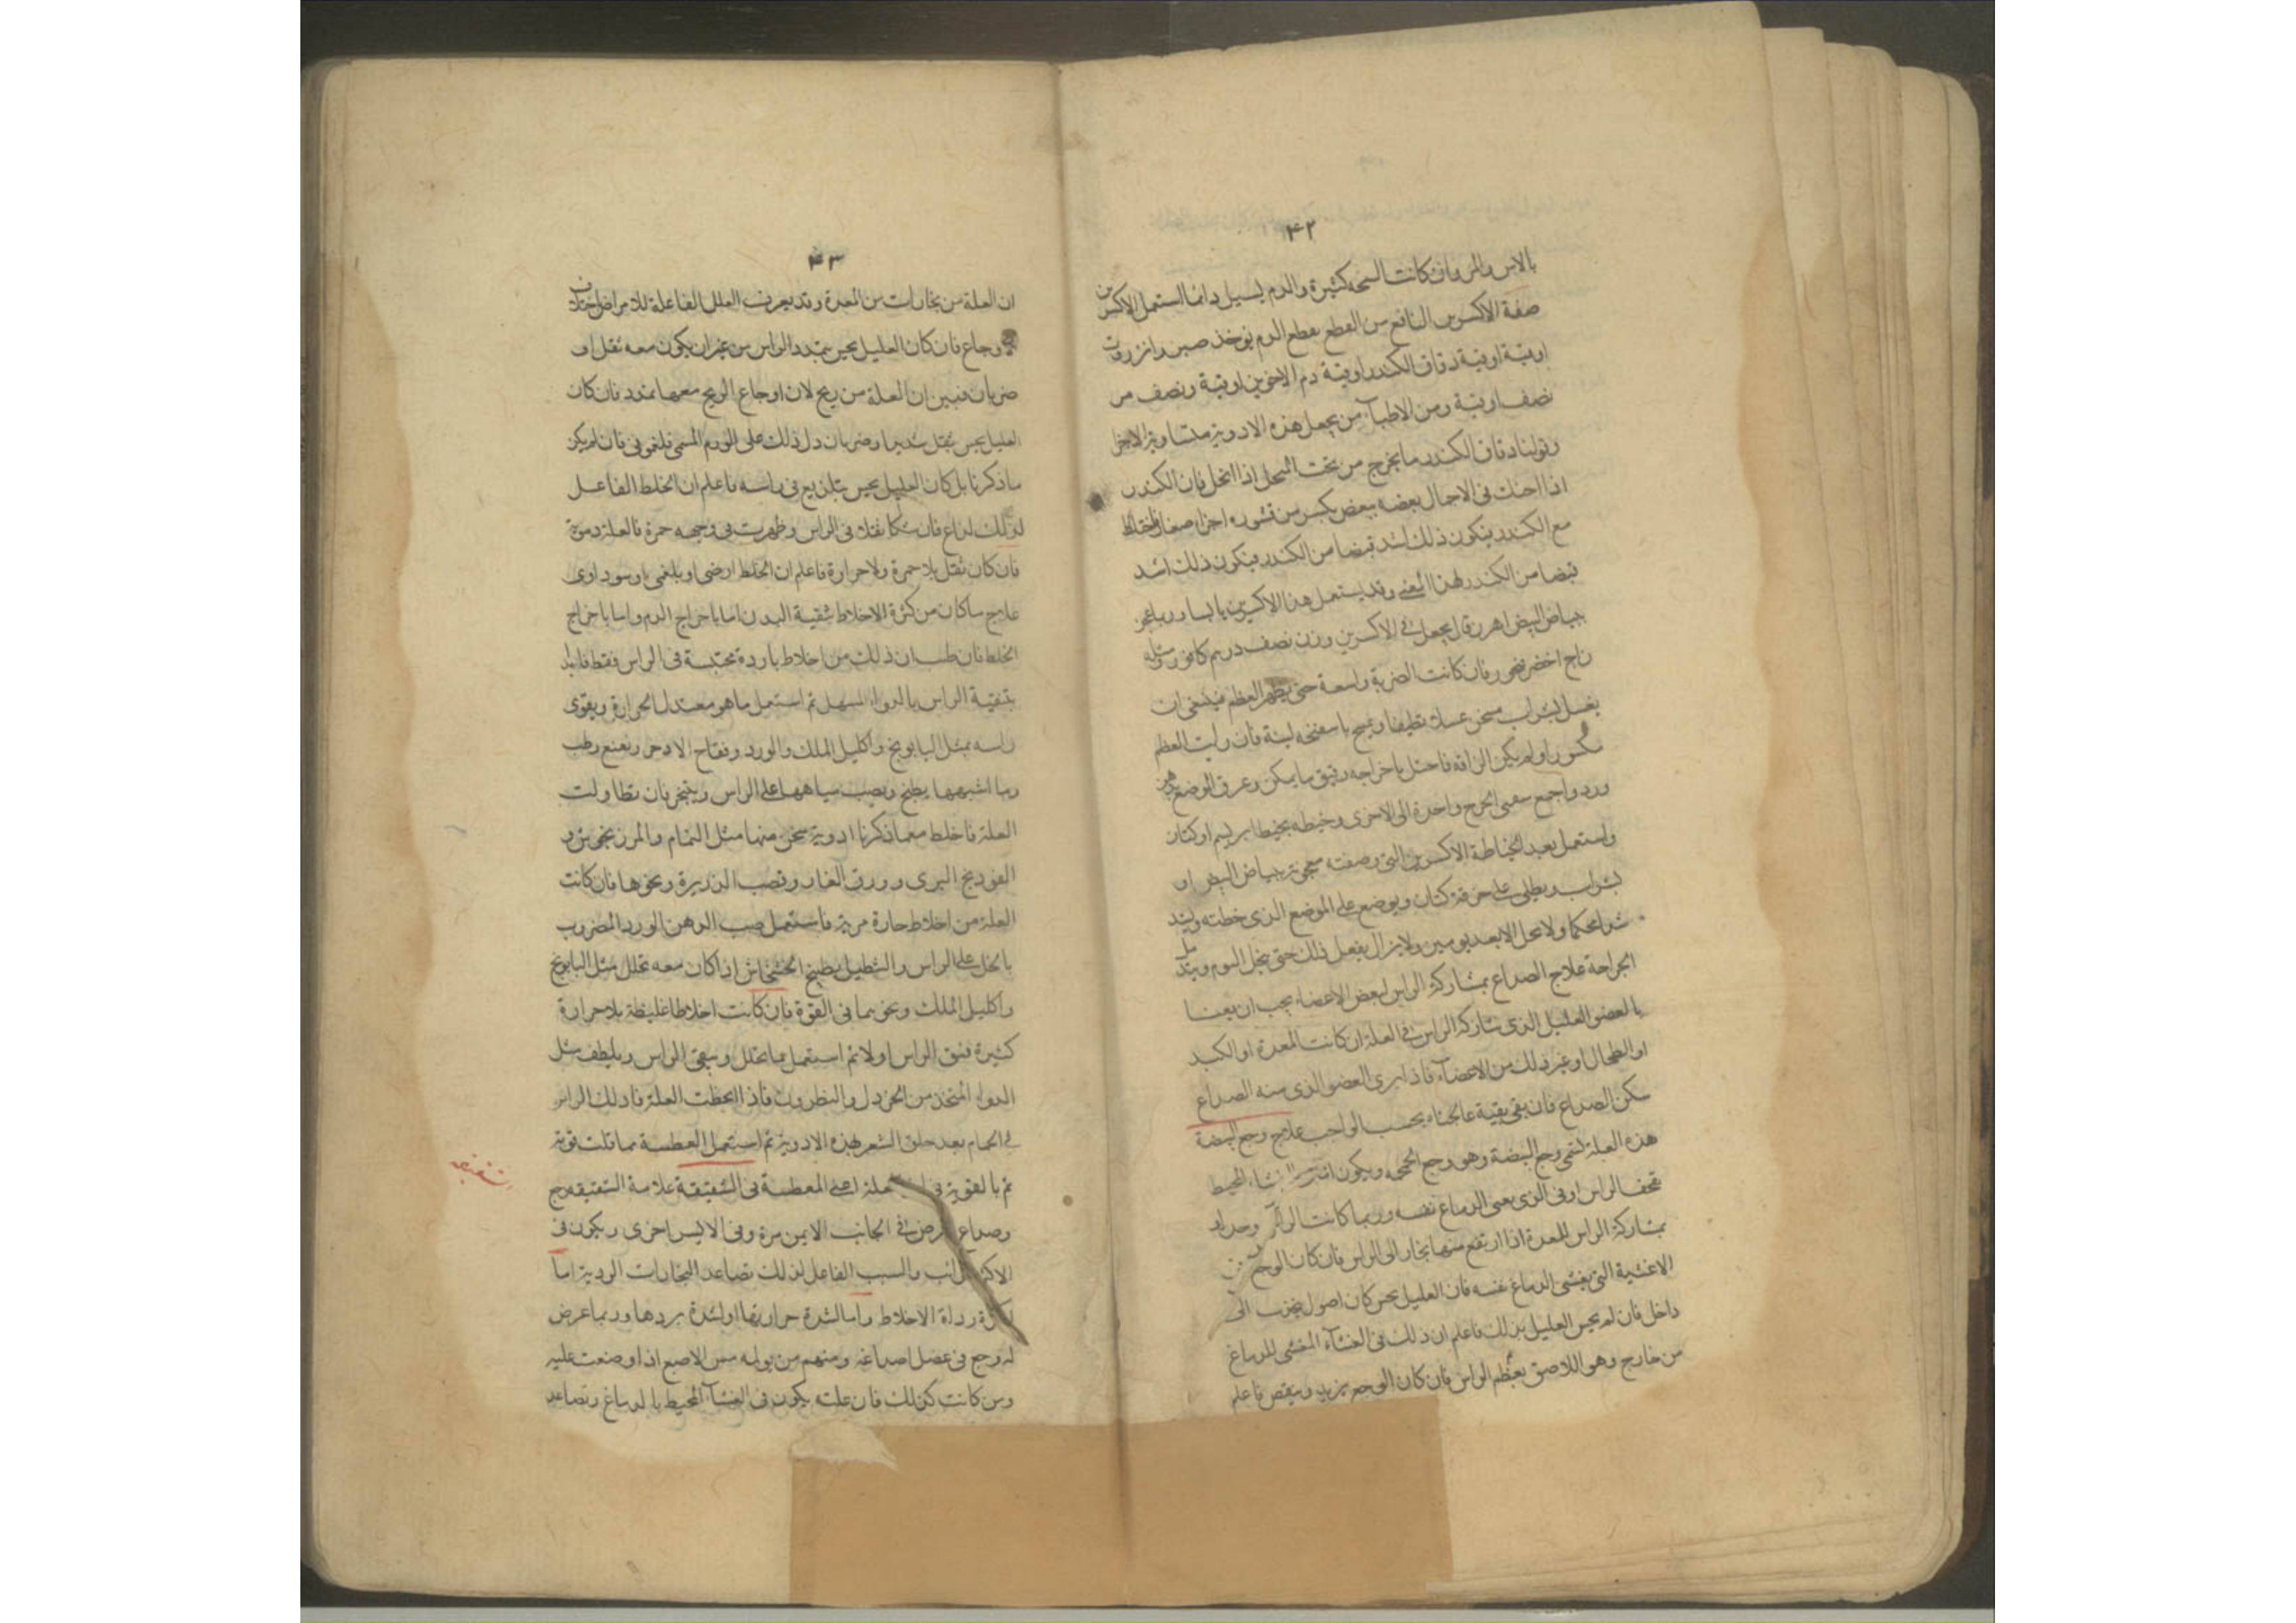 ۴۲
بالاس والمر وان كانت السحه كثيرة والدم يسيل دائما استعمل الاكسرين
صفة الاكسرين النافع من القطع بقطع الدم يوخذ صبر وانزروت
اوقية اوقية دقاق الكندر اوقية دم الاخوين اوقية ونصف مر
نصف اوقية ومن الاطبآء من يجعل هذه الادوية متساوية الاجزا
وقولنا دقاق الكندر ما يخرج من تحت المنخل اذا انخل فان الكندر
اذا احتك فى الاحمال بعضه ببعض يكسر من قشوره اجزا صغار واختلط
مع الكندر فيكون ذلك اشد قبضا من الكندر فيكون ذلك اشد
قبضا من الكندر لهذا المعنى وقد يستعمل هذا الاكسرين يابسا وربما عجن
ببياض البيض اهرن قال يجعل فى الاكسرين وزن نصف درهم كافور ومثله
زاج اخضر فان كانت الضربة واسعة حتى يظهر العظم فينبغى ان
يغسل بشراب مسخن غسلا نظيفا ويمسح باسفنجه لينة فان رايت العظم
مكسورا ولم يكن الزاقه فاحتل باخراجه برفق ما يمكن وعرق الموضع بدهن
ورد واجمع شفتى الجرح واحدة الى الاخرى وخيطه بخيط ابريسم او كتان
واستعمل بعد الخياطة الاكسرين التى وصفت معجونة ببياض البيض او
بشراب ويطلى على خرقة كتان ويوضع على الموضع الذى خطته ويشد
شدا محكما ولا يحل الا بعد يومين ولا يزال يفعل ذلك حتى ينحل الورم ويندمل
الجراحة علاج الصداع بمشاركة الراس لبعض الاعضاء يجب ان يعنا
بالعضو العليل الذى شاركه الراس فى العلة ان كانت المعدة او الكبد
او الطحال او غير ذلك من الاعضآء فاذا برى العضو الذى منه الصداع
سكن الصداع فان بقى بقية عالجناه بحسب الواجب علاج وجع البيضة
هذه العلة تسمى وجع البيضة وهو وجع الجمجمه ويكون اما فى الغشاء المحيط
بقحف الراس او فى الذى يغشى الدماغ نفسه وربما كانت
بمشاركة الراس للمعدة اذا ارتفع منها بخار الى الراس فان كان الوجع
الاغشية التى يغشى الدماغ نفسه فان العليل يحس كان اصول يضرب الى
داخل فان لم يحس العليل بذلك فاعلم ان ذلك فى الغشآء المغشى للدماغ
من خارج وهو اللاصق بعظم الراس فان كان الوجع يزيد وينقص فاعلم
۴۳
ان العلة من بخارات من المعدة وقد يعرف العلل الفاعلة للامراض باختلاف
الاوجاع فان كان العليل يحس بتمدد الراس من غير ان يكون معه ثقل او
ضربان فبين ان العلة من ريح لان اوجاع الريح معها تمدد فان كان
العليل يحس بثقل شديد وضربان دل ذلك على الورم المسمى فلغمونى فان لم يكن
ما ذكرنا بل كان العليل يحس بتلذيع فى راسه فاعلم ان الخلط الفاعل
لذلك لذاع فان شكا ثقلا فى الراس وظهرت فى وجهه حمرة فالعلة دموية
فان كان ثقل بلا حمرة ولا حرارة فاعلم ان الخلط ارضى او بلغمى او سوداوى
علاج ما كان من كثرة الاخلاط تنقية البدن اما باخراج الدم واما باخراج
الخلط فان ظن ان ذلك من اخلاط باردة محتبسة فى الراس فقط فابدا
بتنقية الراس بالدواء المسهل ثم استعمل ما هو معتدل الحرارة ويقوى
راسه بمثل البابونج واكليل الملك والورد وفقاح الاذخر ونعنع رطب
وما اشبهها يطبخ ويصب مياهها على الراس وينخر فان تطاولت
العلة فاخلط مع ما ذكرنا ادوية سخن منها مثل النمام والمرزنجوش و
الفودنج البرى وورق الغار وقصب الذريرة ونحوها فان كانت
العلة من اخلاط حارة مرية فاستعمل صب الدهن الورد المضروب
بالخل على الراس والنطيل بطبخ الخشخاش اذا كان معه محلل مثل البابونج
واكليل الملك ونحوهما فى القوة فان كانت اخلاطا غليظة بلا حرارة
كثيرة فنق الراس اولا ثم استعمل ما يحلل وينقى الراس ويلطف مثل
الدواء المتخذ من الخردل والنطرون فاذا انحطت العلة فادلك الراس
فى الحمام بعد حلق الشعر بهذه الادوية ثم استعمل العطسة مما قلت قوته
ثم بالقوية فى العلة اعنى المعطسة فى الشقيقة علامة الشقيقه وجع
وصداع يعرض فى الجانب الايمن مرة وفى الايسر اخرى ويكون فى
والسبب الفاعل لذلك تصاعد البخارات الردية اما
لكثرة رداة الاخلاط واما لشدة حرارتها او لشدة بردها وربما عرض
له وجع فى عضل اصداغه ومنهم من يولمه مس الاصبع اذا وضعت عليه
ومن كانت كذلك فان علته يكون فى الغشآء المحيط بالدماغ وتصاعد
شقيقه